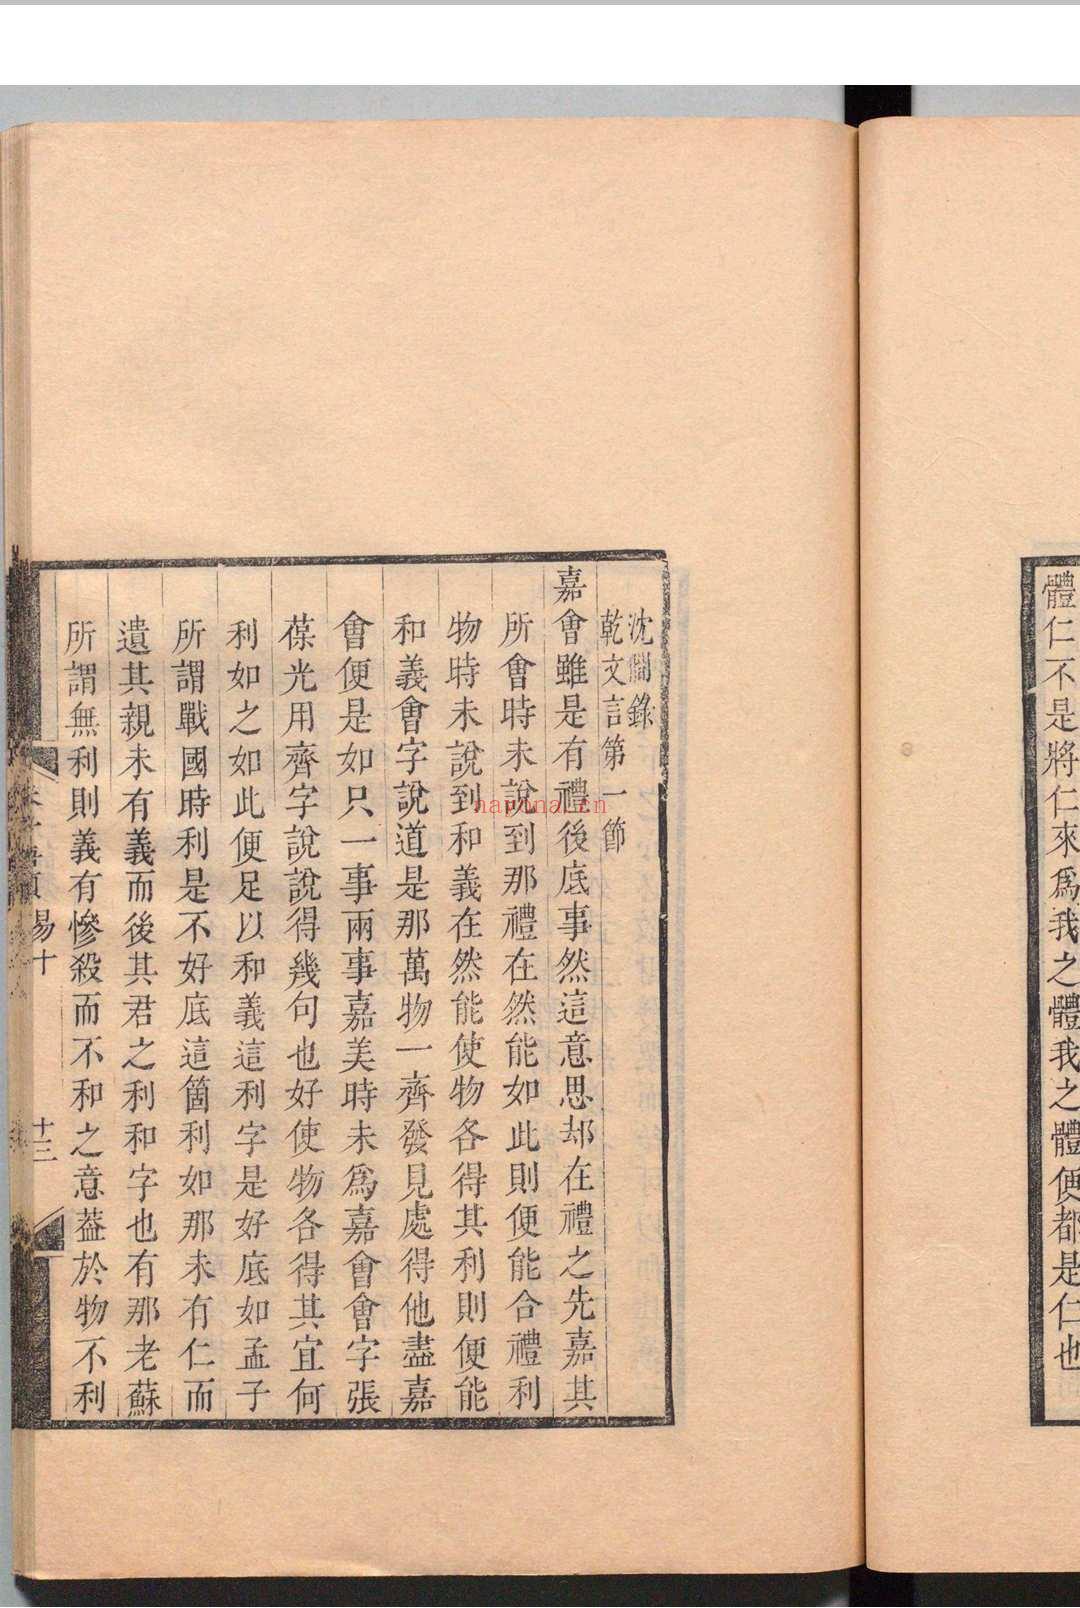 體仁不是將仁來爲我之體我之體便都是仁也
沈僩錄
乾文言第一節
嘉會雖是有禮後底事然這意思却在禮之先嘉其
所會時未說到那禮在然能如此則便能合禮利
物時未說到和義在然能使物各得其利則便能
和義會字說道是那萬物一齊發見處得他盡嘉
會便是如只一事兩事嘉美時未爲嘉會會字張
葆光用齊字說說得幾句也好使物各得其宜何
利如之如此便足以和義這利字是好底如孟子
所謂戰國時利是不好底這箇利如那未有仁而
遺其親未有義而後其君之利和字也有那老蘇
所謂無利則義有慘殺而不和之意葢於物不利
易十
十三
nayona.cn